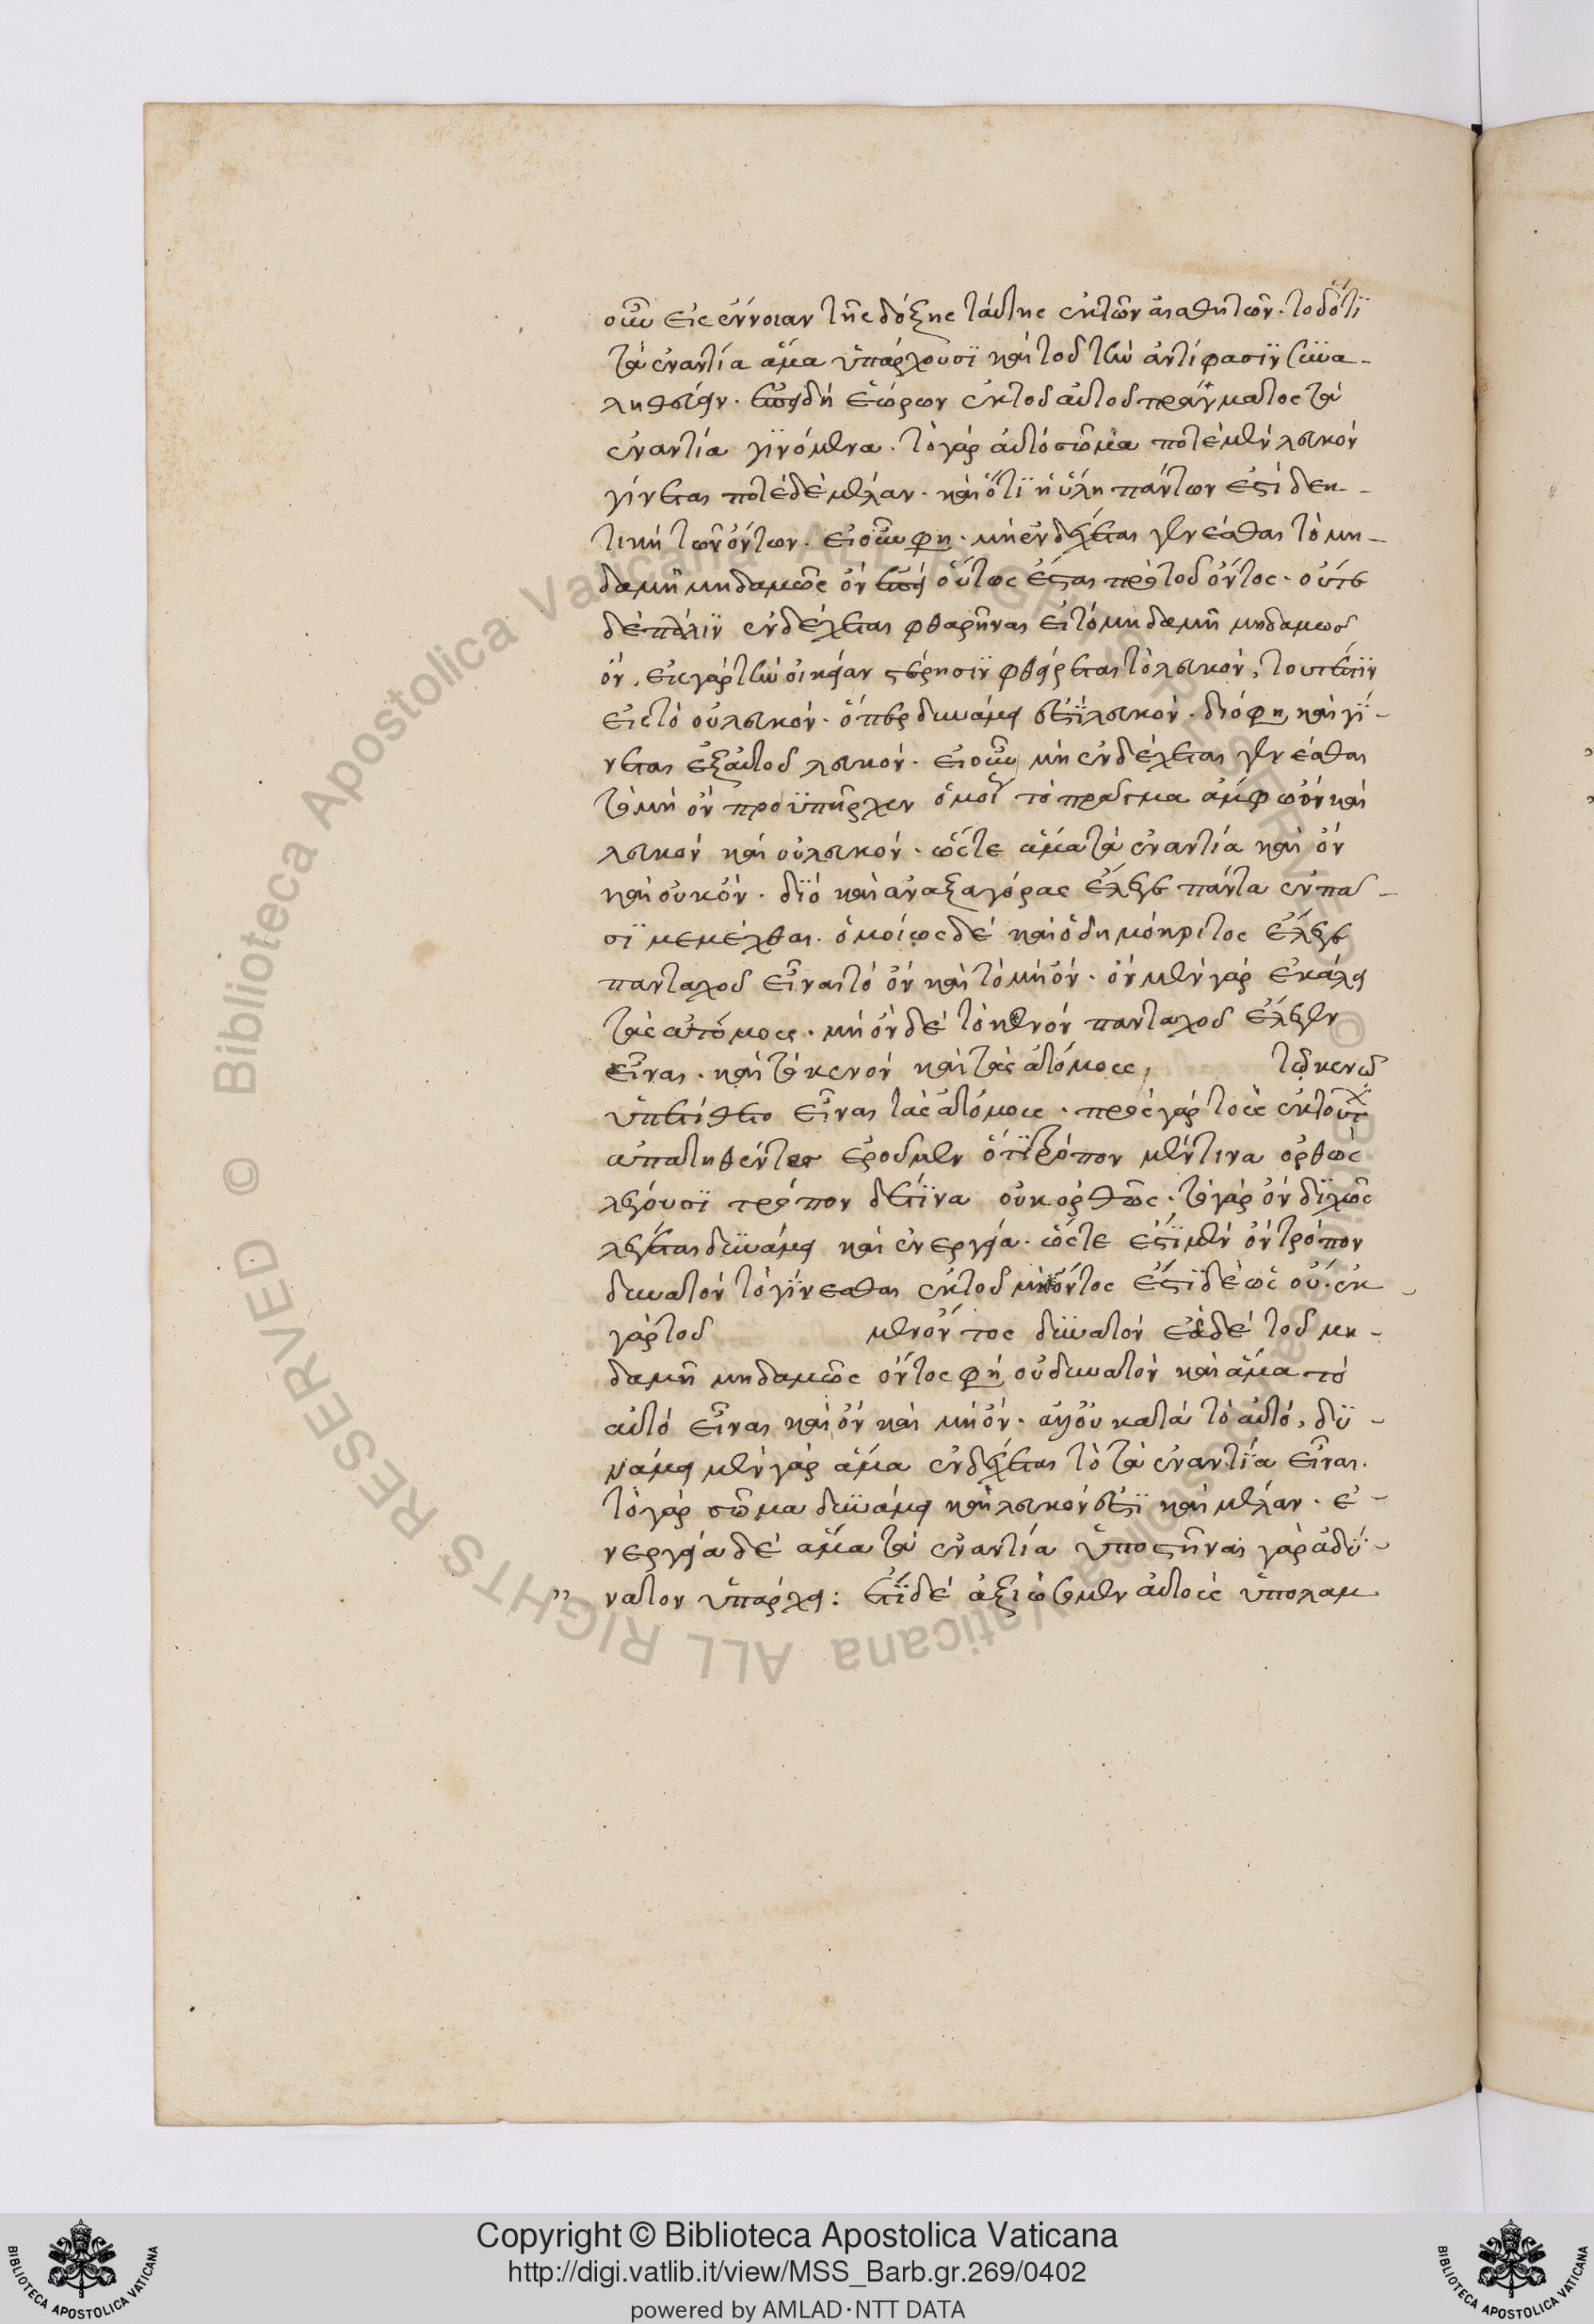 οὖν εἰς ἔννοιαν τῆς δόξης ταύτης ἐκ τῶν αἰσθητῶν. τοῦ ὅτι
τὰ ἐναντία ἅμα ὑπάρχουσι καὶ τοῦ τὴν ἀντίφασιν συνα-
ληθεύειν. ἐπειδὴ ἑώρων ἐκ τοῦ αὐτοῦ πράγματος τὰ
ἐναντία γινόμενα. τὸ γὰρ αὐτὸ σῶμα ποτὲ μὲν λευκὸν
γίνεται ποτὲ δὲ μέλαν. καὶ ὅτι ἡ ὕλη πάντων ἐστὶ δεκ-
τικὴ τῶν ὄντων. εἰ οὖν φη. μὴ ἐνδέχεται γενέσθαι τὸ μη-
δαμῆ μηδαμῶς ὂν ἐπεὶ οὕτως ἔσται πρὸ τοῦ ὄντος. οὔτε
δὲ πάλιν ἐνδέχεται φθαρῆναι εἰ τὸ μηδαμῆ μηδαμῶς
ὄν. εἰς γὰρ τὴν οἰκείαν στέρησιν φθείρεται τὸ λευκόν, τουτέστιν
εἰς τὸ οὐ λευκόν. ὅπερ δυνάμει ἐστὶ λευκόν. διό φη καὶ γί-
νεται ἐξ αὐτοῦ λευκόν. εἰ οὖν μὴ ἐνδέχεται γενέσθαι
τὸ μὴ ὂν προϋπῆρχεν ὁμοῦ τὸ πρᾶγμα ἄμφω ὂν καὶ
λευκὸν καὶ οὐ λευκόν. ὥστε ἅμα τὰ ἐναντία καὶ ὂν
καὶ οὐκ ὄν. διὸ καὶ ἀναξαγόρας ἔλεγε πάντα ἐν πα-
σι μεμίχθαι. ὁμοίως δὲ καὶ ὁ δημόκριτος ἔλεγε
πανταχοῦ εἶναι τὸ ὂν καὶ τὸ μὴ ὄν. ὂν μὲν γὰρ ἐκάλει
τὰς ἀτόμους. μὴ ὂν δὲ τὸ κενὸν πανταχοῦ ἔλεγεν
εἶναι. καὶ τὸ κενὸν καὶ τὰς ἀτόμους, τῷ κενῷ
ὑπετίθετο εἶναι τὰς ἀτόμους. πρὸς γὰρ τοὺς ἐκ τούτ
ἀπατηθέντες ἐροῦμεν ὅτι τρόπον μέν τινα ὀρθῶς
λέγουσι τρόπον δέ τινα οὐκ ὀρθῶς. τὸ γὰρ ὂν διχῶς
λέγεται δυνάμει καὶ ἐνεργείᾳ. ὥστε ἔστι μὲν ὃν τρόπον
δυνατὸν τὸ γίνεσθαι ἐκ τοῦ μὴ ὄντος ἔστι δὲ ὡς οὔ. ἐκ
γὰρ τοῦ μὲν ὄντος δυνατὸν ἐκ δὲ τοῦ μη-
δαμῆ μηδαμῶς ὄντος φη οὐ δυνατὸν καὶ ἅμα τὸ
αὐτὸ εἶναι καὶ ὂν καὶ μὴ ὄν. ἀλλ' οὐ κατὰ τὸ αὐτό, δυ-
νάμει μὲν γὰρ ἅμα ἐνδέχεται τὸ τὰ ἐναντία εἶναι.
τὸ γὰρ σῶμα δυνάμει καὶ λευκόν ἐστι καὶ μέλαν. ἐ-
νεργείᾳ δὲ ἅμα τὰ ἐναντία ὑποστῆναι γὰρ ἀδύ-
" νατον ὑπάρχει: ἔτι δὲ ἀξιώσομεν αὐτοὺς ὑπολαμ
Biblioteca Apostolica Vaticana ALL RIGHTS RESERVED ©
Copyright © Biblioteca Apostolica Vaticana
http://digi.vatlib.it/view/MSS_Barb.gr.269/0402
powered by AMLAD·NTT DATA
BIBLIOTECA APOSTOLICA VATICANA
BIBLIOTECA APOSTOLICA VATICANA